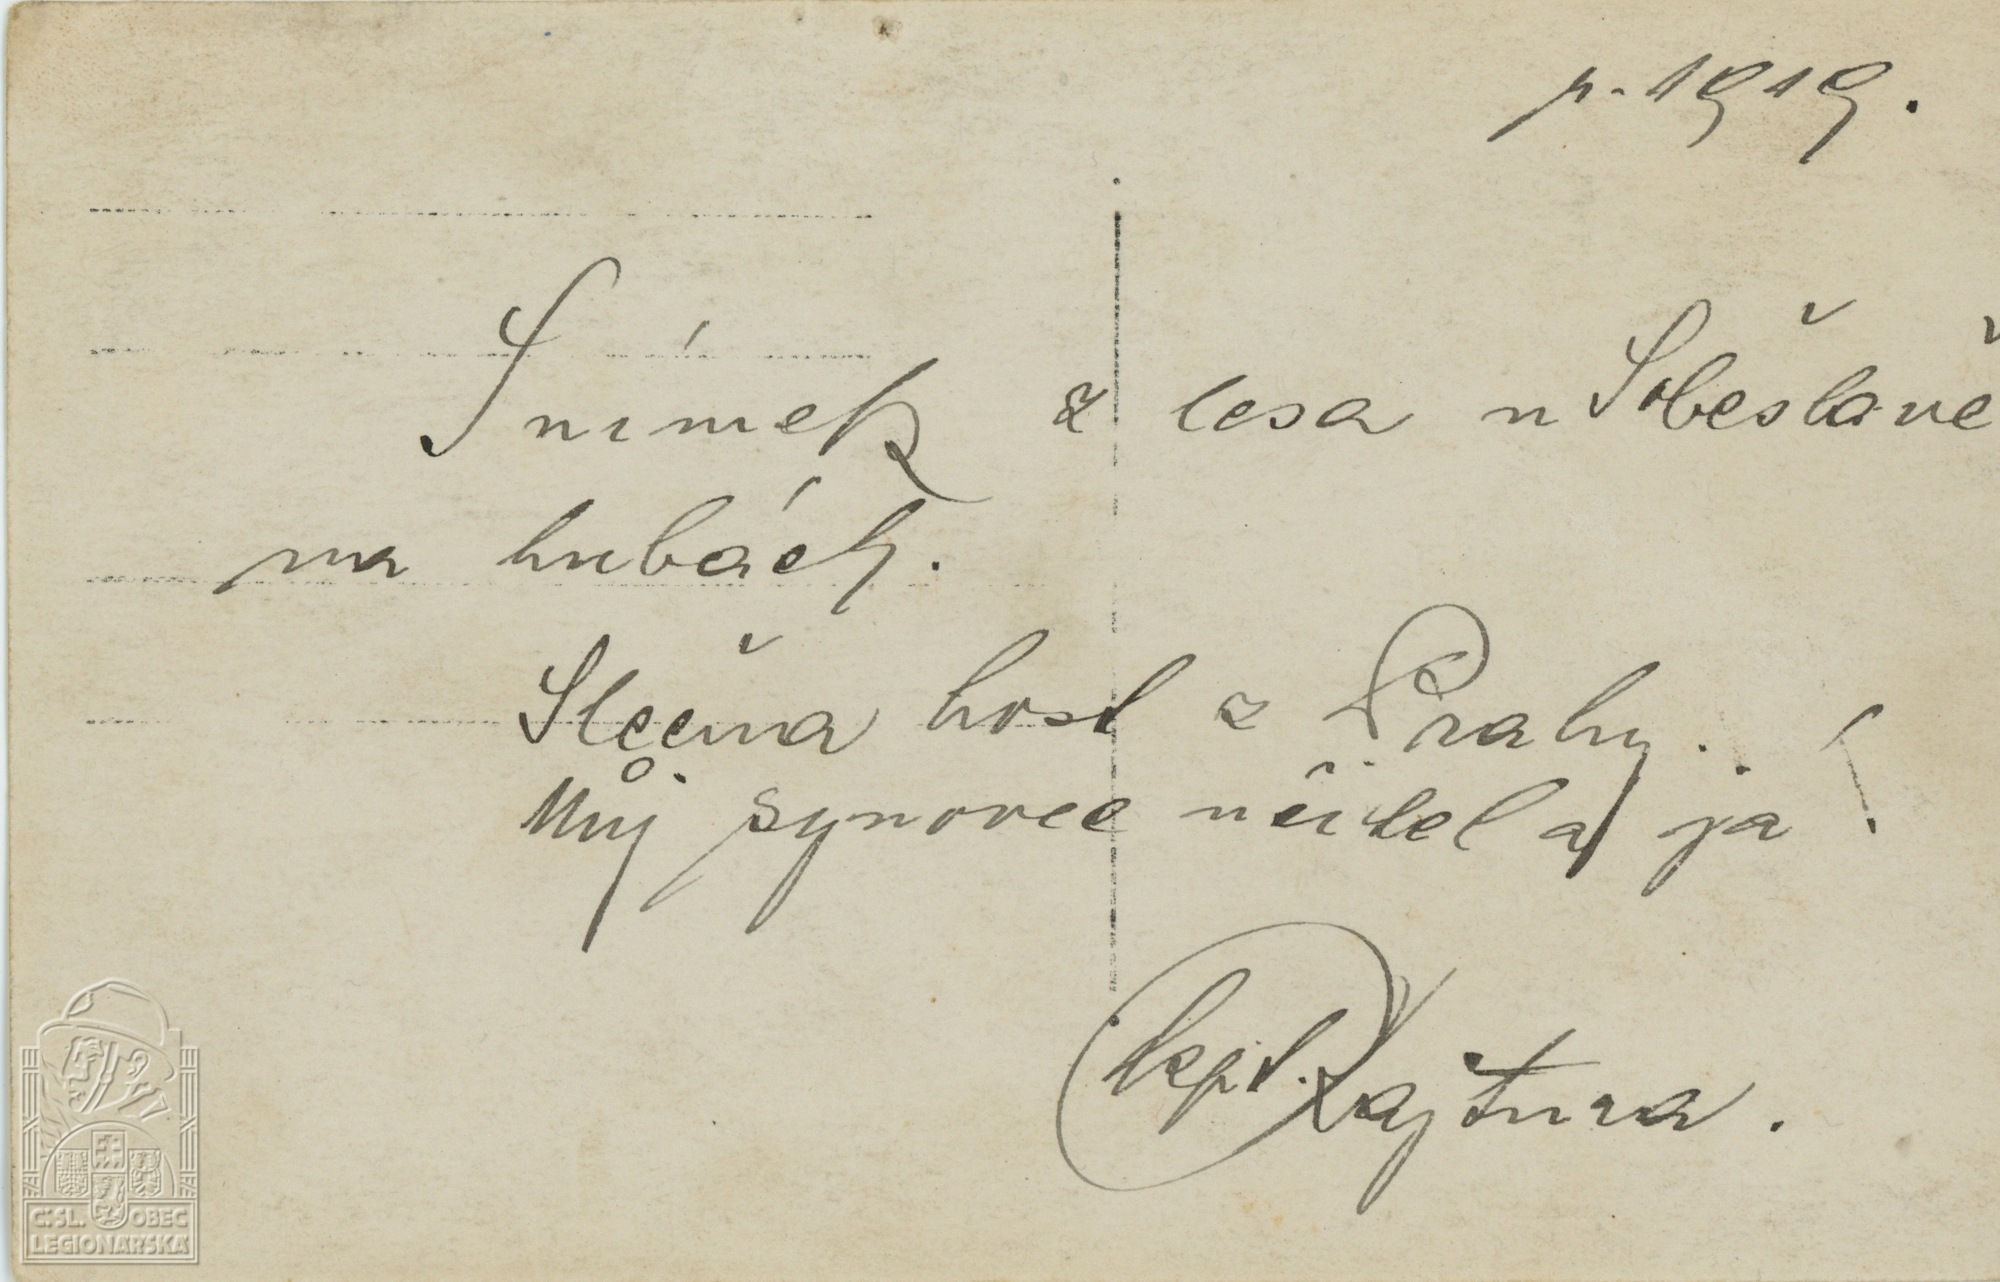 r. 1919.
Snímek z lesa u Soběslavě
na hubách.
Slečna host z Prahy.
Můj synovec učitel a já!
kpt. Rajtura.
Č.SL. OBEC
LEGIONÁŘSKÁ